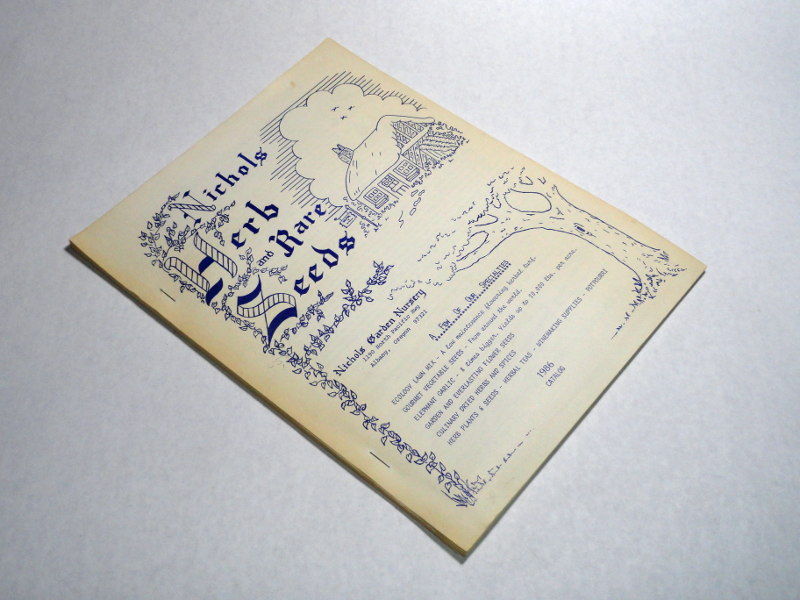 Nichols
Herb
and Rare
Seeds
Nichols Garden Nursery
1190 North Pacific Hwy
Albany, Oregon 97321
A Few Of Our Specialties
ECOLOGY LAWN MIX - A low maintenance flowering herbal turf.
GOURMET VEGETABLE SEEDS - From around the world.
ELEPHANT GARLIC - 6 times bigger. Yields up to 19,000 lbs. per acre.
GARDEN AND EVERLASTING FLOWER SEEDS
CULINARY DRIED HERBS AND SPICES
HERB PLANTS & SEEDS - HERBAL TEAS - WINEMAKING SUPPLIES - POTPOURRI
1986
CATALOG